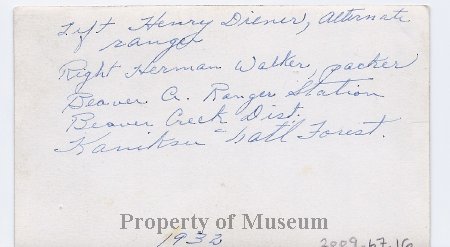 Left Henry Diener, alternate
ranger
Right Herman Walker, packer
Beaver Cr. Ranger Station
Beaver Creek Dist.
Kaniksu Natl Forest.
Property of Museum
1932
2009.67.16